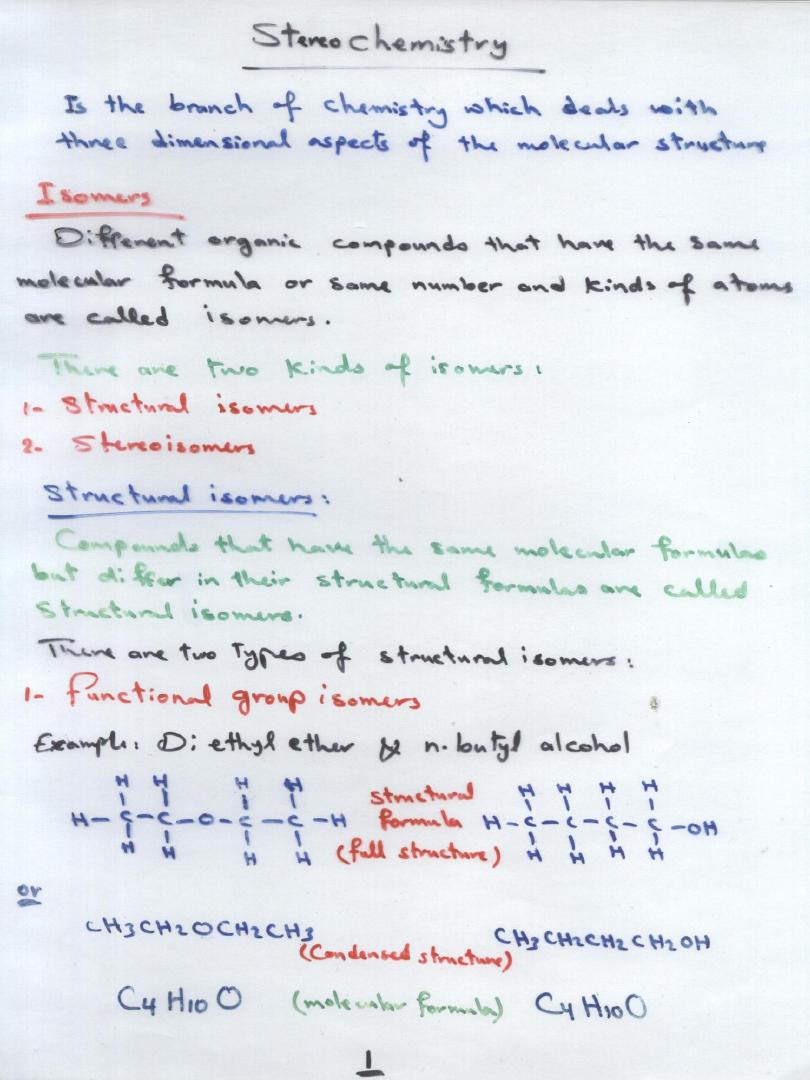 Stereochemistry
Is the branch of chemistry which deals with
three dimensional aspects of the molecular structure
Isomers
Different organic compounds that have the same
molecular formula or same number and kinds of atoms
are called isomers.
There are two kinds of isomers:
1- Structural isomers
2- Stereoisomers
Structural isomers:
Compounds that have the same molecular formulas
but differ in their structural formulas are called
Structural isomers.
There are two Types of structural isomers:
1- Functional group isomers
Example: Di ethyl ether & n.butyl alcohol
H H H H structural H H H H
H-C-C-O-C-C-H formula H-C-C-C-C-OH
H H H H (full structure) H H H H
or
CH3CH2OCH2CH3 CH3CH2CH2CH2OH
(Condensed structure)
C4H10O (molecular formula) C4H10O
1